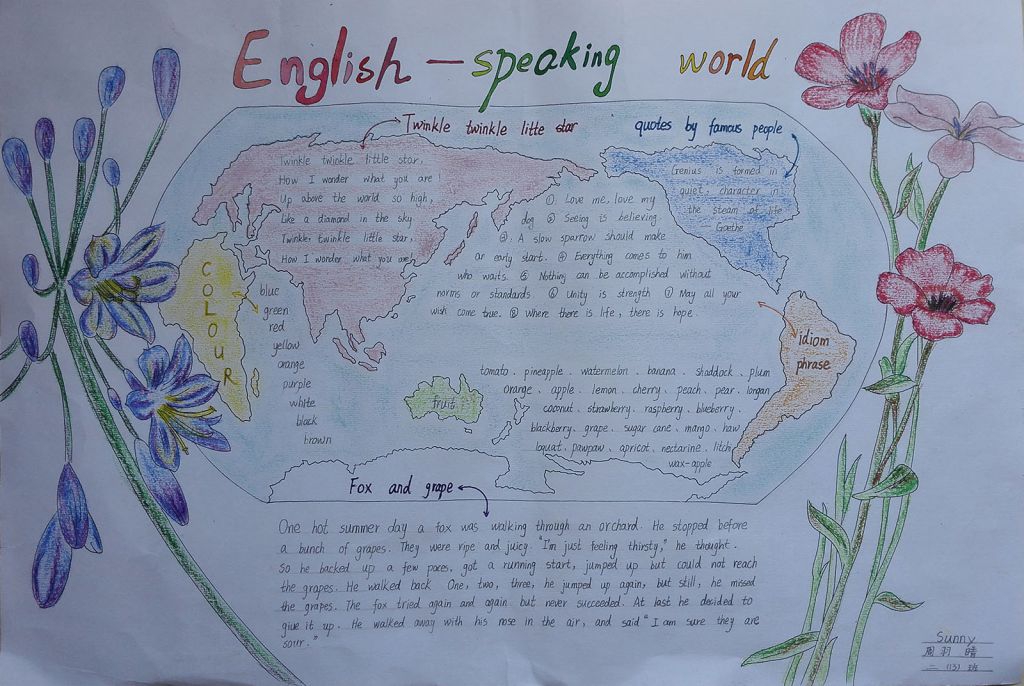 English-speaking world
Twinkle twinkle litte star
quotes by famous people
Twinkle twinkle little star,
How I wonder what you are!
Up above the world so high,
Like a diamond in the sky
Twinkle, twinkle little star,
How I wonder what you are!
Genius is formed in
quiet, character in
the steam of life
—Goethe
①. Love me, love my
dog ② Seeing is believing.
③. A slow sparrow should make
an early start. ④ Everything comes to him
who waits. ⑤ Nothing can be accomplished without
norms or standards ⑥ Unity is strength ⑦ May all your
wish come true. ⑧ Where there is life, there is hope.
COLOUR
blue
green
red
yellow
orange
purple
white
black
brown
idiom
phrase
fruit
tomato. pineapple. watermelon. banana. shaddock. plum
orange. apple. lemon. cherry. peach. pear. longan
coconut. strawberry. raspberry. blueberry.
blackberry. grape. sugar cane. mango. haw
loquat. pawpaw. apricot. nectarine. litchi
wax-apple
Fox and grape
One hot summer day a fox was walking through an orchard. He stopped before
a bunch of grapes. They were ripe and juicy. "I'm just feeling thirsty," he thought.
So he backed up a few paces, got a running start, jumped up but could not reach
the grapes. He walked back One, two, three, he jumped up again, but still, he missed
the grapes. The fox tried again and again but never succeeded. At last he decided to
give it up. He walked away with his nose in the air, and said "I am sure they are
sour."
Sunny
周羽晴
二(13)班